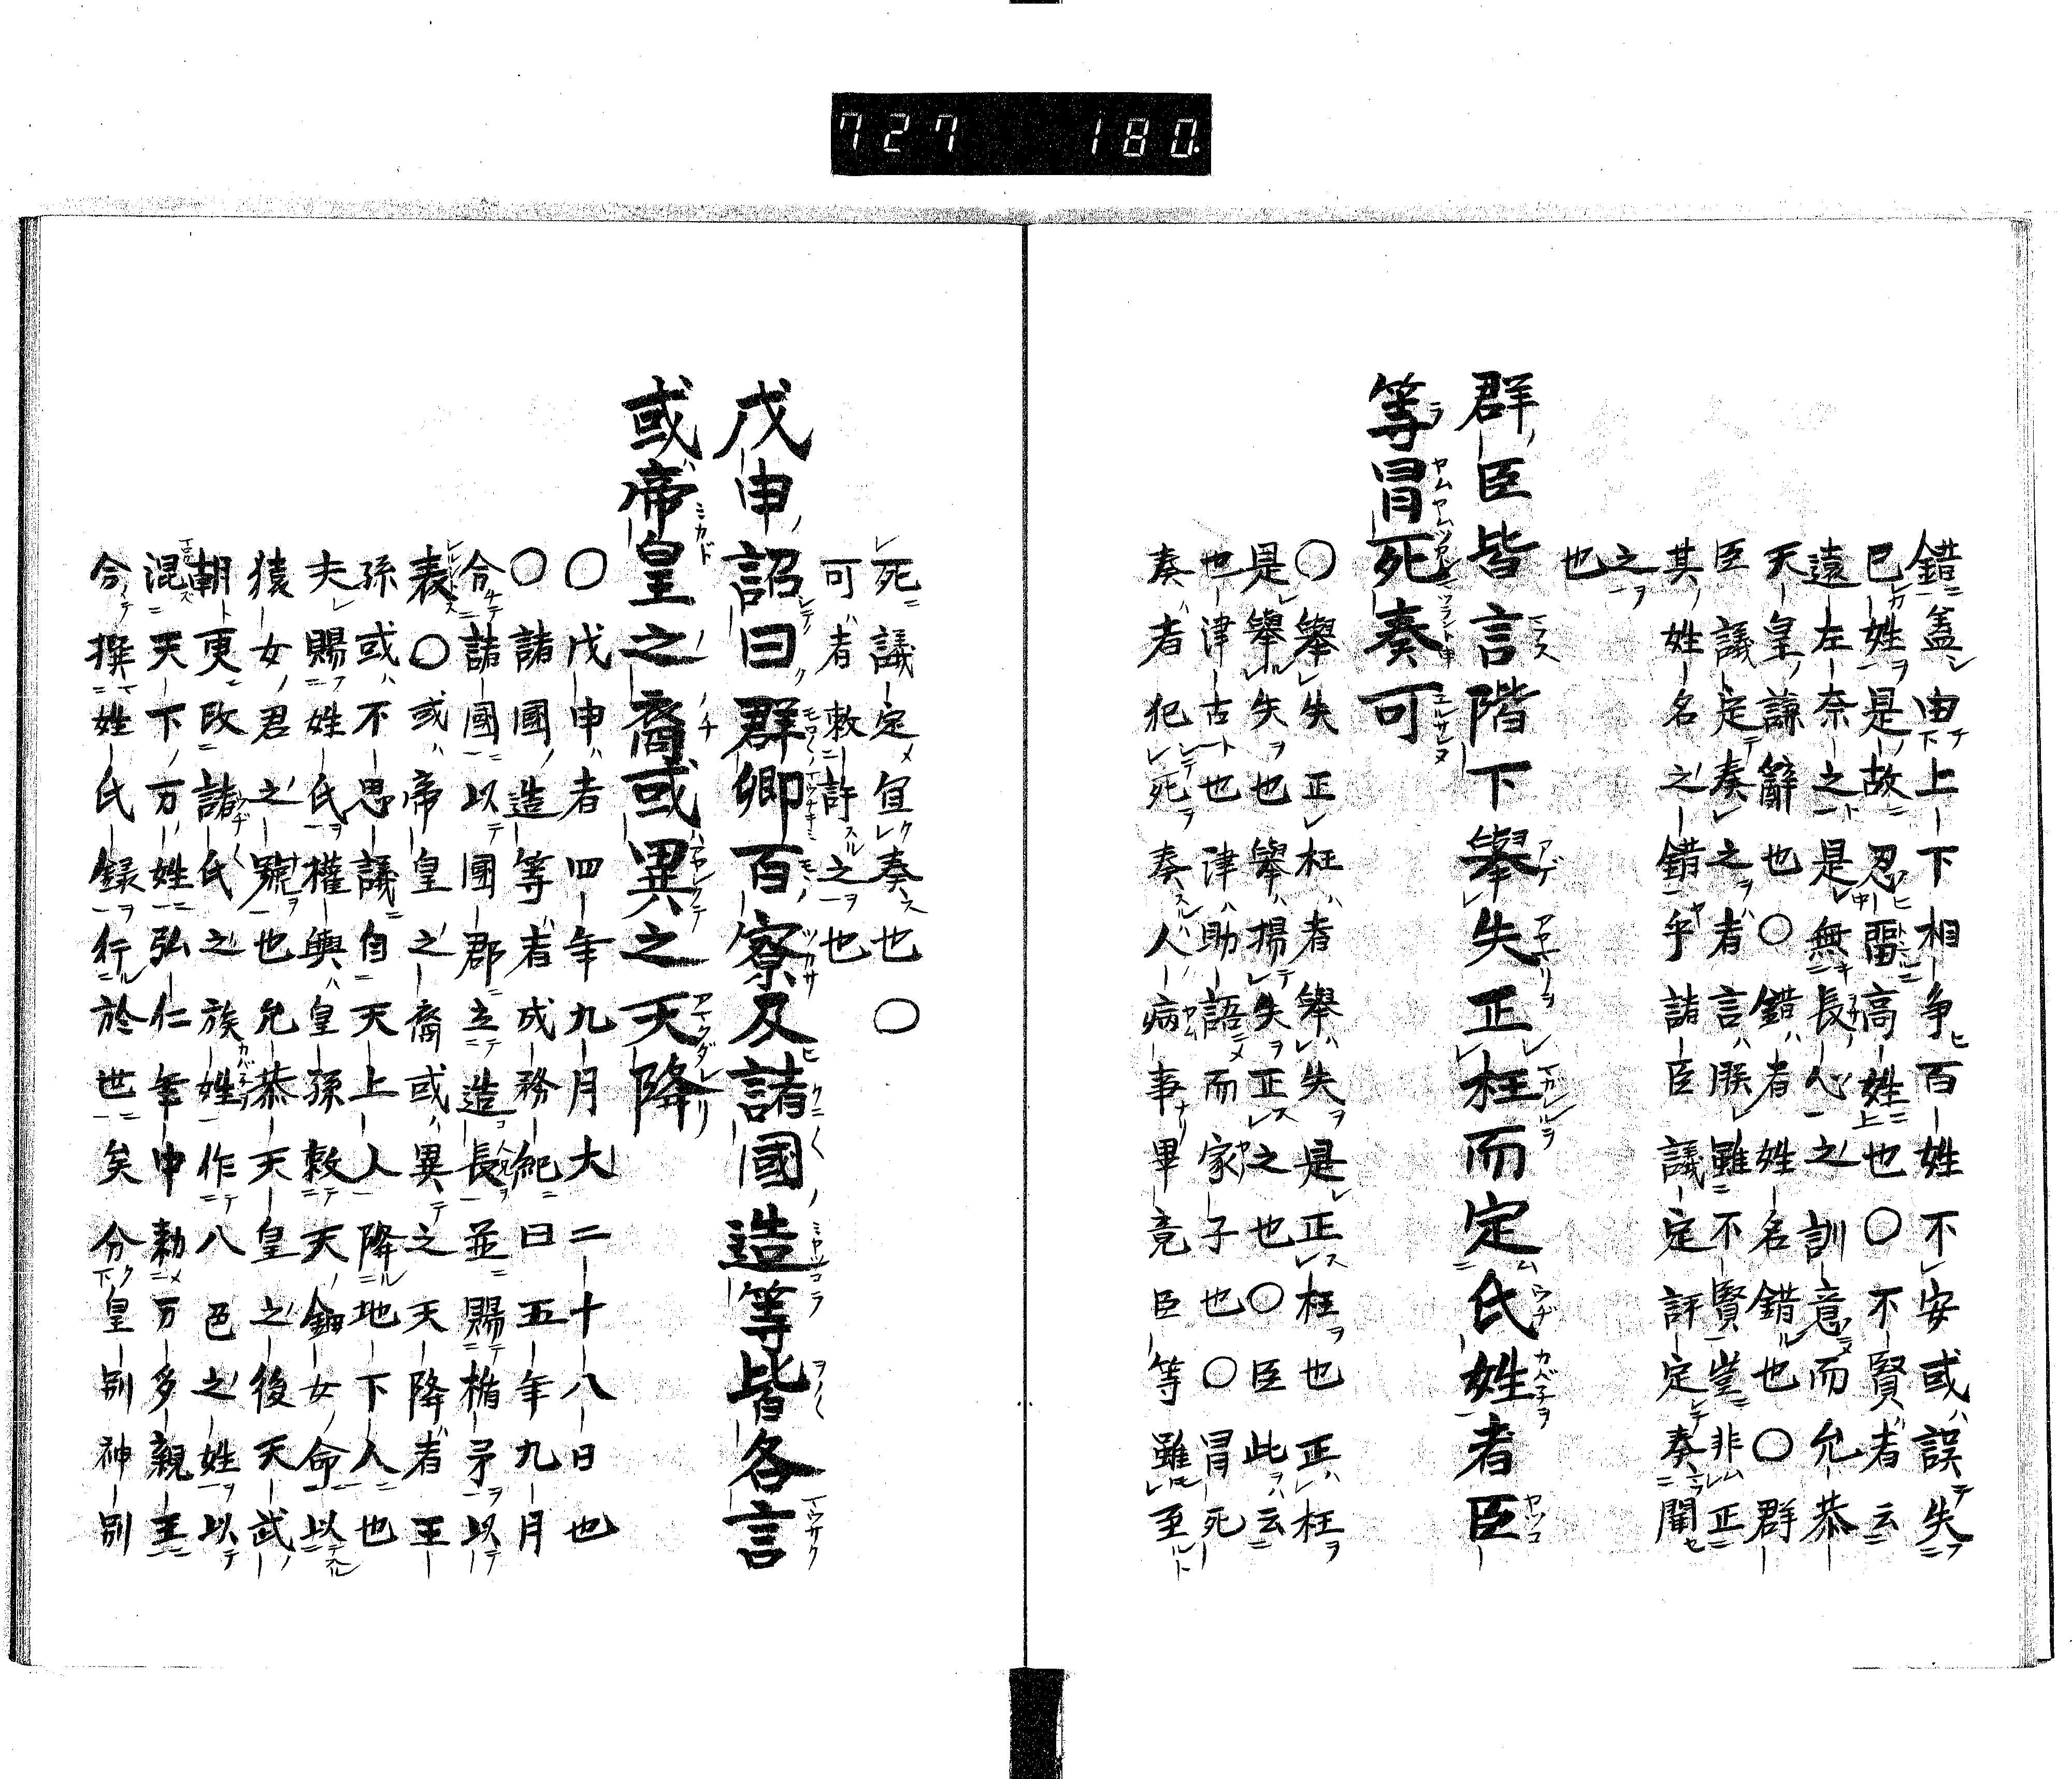 727 180
錯盖申上下相争百姓不安或誤失
已姓是故忍畱高姓也〇不賢者云
遠左奈之是無長人之訓意而允恭
天皇謙辭也〇錯者姓名錯也〇群
臣議定奏之者言朕雖不賢豈非正
其姓名之錯乎諸臣議定評定奏聞
之
也
群臣皆言階下擧失正枉而定氏姓者臣
等冒死奏可
〇擧失正枉者擧失是正枉也正枉
是擧失也擧揚失正之也〇臣此云
也津古也津助語而家子也〇冒死
奏者犯死奏人病事畢竟臣等雖至
死議定宜奏也〇
可者敕許之也
戊申詔曰群卿百寮及諸國造等皆各言
或帝皇之裔或異之天降
〇戊申者四年九月大二十八日也
〇諸國造等者成務紀曰五年九月
令諸國以國郡立造長並賜楯矛以
表〇或帝皇之裔或異之天降者王
孫或不思議自天上人降地下人也
夫賜姓氏權輿皇孫敕天鈿女命以
猿女君之號也允恭天皇之後天武
朝更改諸氏之族姓作八色之姓以
混天下万姓弘仁年中勅万多親王
令撰姓氏録行於世矣分皇別神別